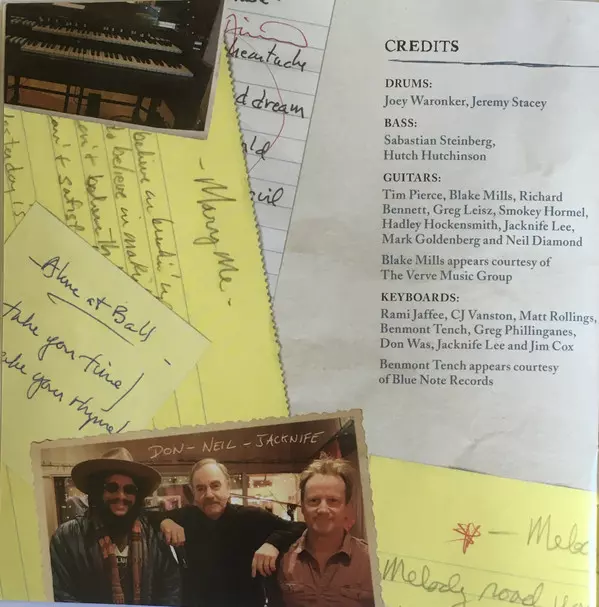 CREDITS
DRUMS:
Joey Waronker, Jeremy Stacey
BASS:
Sabastian Steinberg,
Hutch Hutchinson
GUITARS:
Tim Pierce, Blake Mills, Richard
Bennett, Greg Leisz, Smokey Hormel,
Hadley Hockensmith, Jacknife Lee,
Mark Goldenberg and Neil Diamond
Blake Mills appears courtesy of
The Verve Music Group
KEYBOARDS:
Rami Jaffee, CJ Vanston, Matt Rollings,
Benmont Tench, Greg Phillinganes,
Don Was, Jacknife Lee and Jim Cox
Benmont Tench appears courtesy
of Blue Note Records
heartache
d dream
- Marry Me -
believe in
to believe in
can't satisf
yesterday is
at Ball -
take your time
your rhyme
DON - NEIL - JACKNIFE
- Melo
Melody road